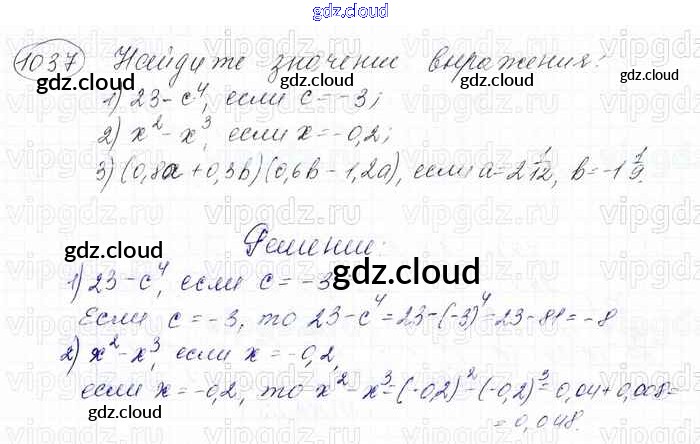 gdz.cloud
1037 Найдите значение выражения:
1) 23 - c⁴, если c = -3;
2) x² - x³, если x = -0,2;
3) (0,8a + 0,3b)(0,6b - 1,2a), если a = 2 1/12, b = -1 1/9.
Решение:
1) 23 - c⁴, если c = -3
Если c = -3, то 23 - c⁴ = 23 - (-3)⁴ = 23 - 81 = -8
2) x² - x³, если x = -0,2,
если x = -0,2, то x² - x³ = (-0,2)² - (-0,2)³ = 0,04 + 0,008 =
= 0,048.
gdz.cloud
gdz.cloud
gdz.cloud
gdz.cloud
gdz.cloud
gdz.cloud
gdz.cloud
gdz.cloud
vipgdz.ru